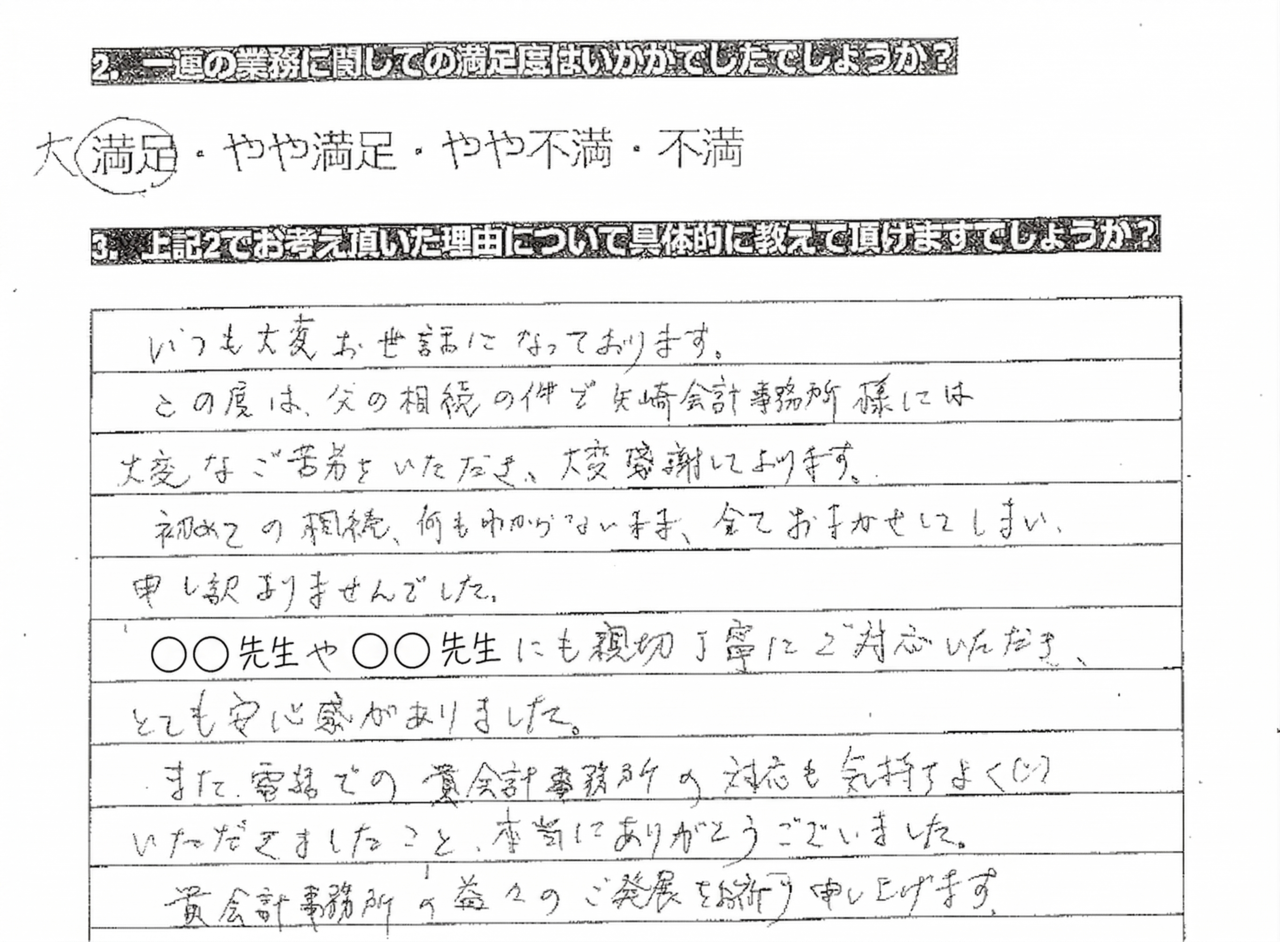 2. 一連の業務に関しての満足度はいかがでしたでしょうか？
大満足・やや満足・やや不満・不満
3. 上記2でお考え頂いた理由について具体的に教えて頂けますでしょうか？
いつも大変お世話になっております。
この度は、父の相続の件で矢崎会計事務所様には
大変なご苦労をいただき、大変感謝しております。
初めての相続、何もわからないまま、全ておまかせしてしまい、
申し訳ありませんでした。
〇〇先生や〇〇先生にも親切丁寧にご対応いただき、
とても安心感がありました。
また、電話での貴会計事務所の対応も気持ちよく
いただきましたこと、本当にありがとうございました。
貴会計事務所の益々のご発展をお祈り申し上げます。